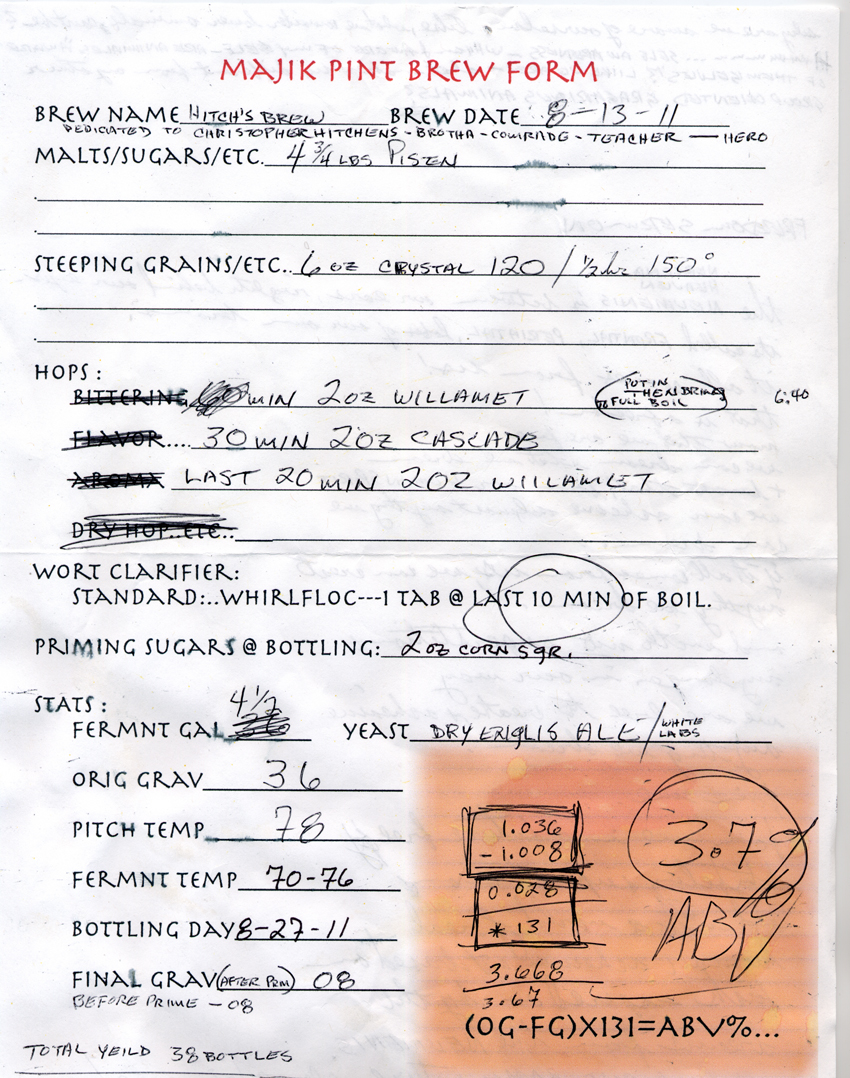 MAJIK PINT BREW FORM
BREW NAME HITCH'S BREW BREW DATE.. 8-13-11
DEDICATED TO CHRISTOPHER HITCHENS - BROTHA - COMRADE - TEACHER — HERO
MALTS/SUGARS/ETC. 4 3/4 LBS PISEN
STEEPING GRAINS/ETC.. 6 OZ CRYSTAL 120 / 1/2 hr 150°
HOPS :
BITTERING MIN 2OZ WILLAMET PUT IN THEN BRING TO FULL BOIL 6:40
FLAVOR.... 30 MIN 2OZ CASCADE
AROMA LAST 20 MIN 2OZ WILLAMET
DRY HOP..ETC..
WORT CLARIFIER:
STANDARD:..WHIRLFLOC---1 TAB @ LAST 10 MIN OF BOIL.
PRIMING SUGARS @ BOTTLING: 2 OZ CORN SGR.
STATS :
4 1/2
FERMNT GAL YEAST DRY ENGLIS ALE / WHITE LABS
ORIG GRAV 36
PITCH TEMP 78
FERMNT TEMP 70-76
BOTTLING DAY 8-27-11
FINAL GRAV (AFTER PRM) 08
BEFORE PRIME - 08
TOTAL YEILD 38 BOTTLES
1.036
- 1.008
0.028
* 131
3.668
3.67
3.7%
ABV
(OG-FG)X131=ABV%...